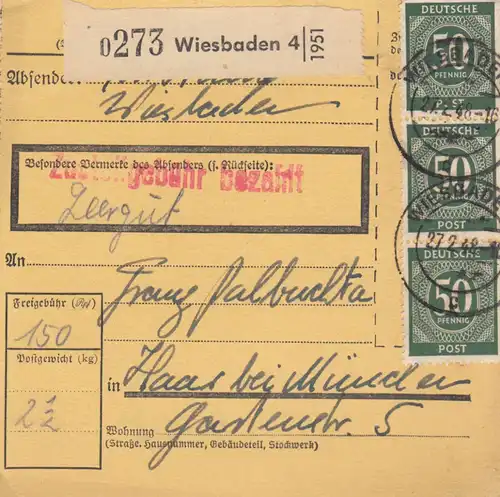 0273 Wiesbaden 4
1951
Absender:
Wiesbaden
Besondere Vermerke des Absenders (s. Rückseite):
Zustellgebühr bezahlt
Leergut
An
Franz
Freigebühr (Rpf)
150
Postgewicht (kg)
2 1/2
in Haar bei München
Wohnung Gartenstr. 5
(Straße, Hausnummer, Gebäudeteil, Stockwerk)
DEUTSCHE
50
PFENNIG
POST
WIESBADEN
27.2.48
DEUTSCHE
50
PFENNIG
POST
WIESBADEN
27.2.48
DEUTSCHE
50
PFENNIG
POST